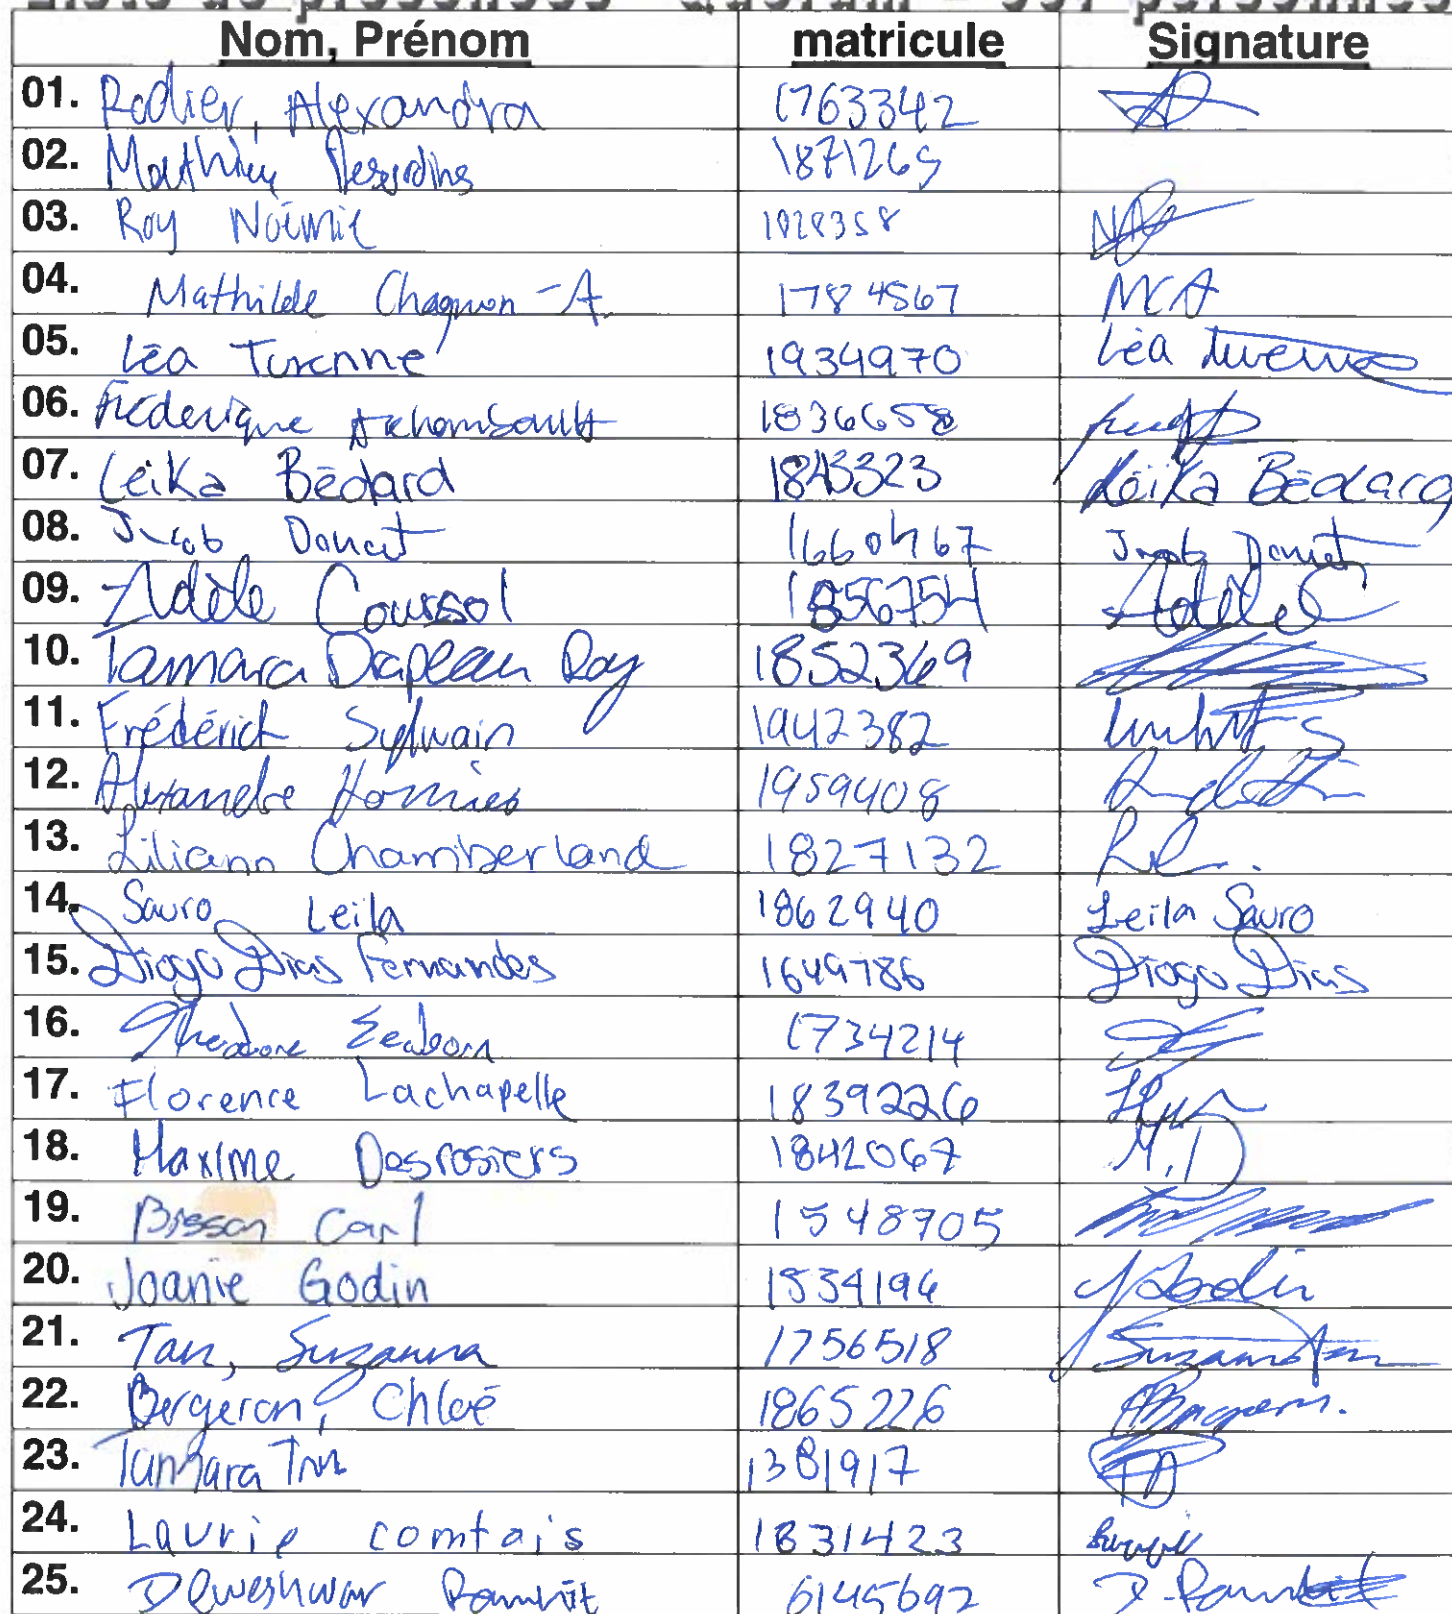 Liste de présences Quorum - personnes
Nom, Prénom matricule Signature
01. Rodier, Alexandra 1763342
02. Mathieu Desjardins 1871265
03. Roy Noémie 1928358
04. Mathilde Chagnon-A. 1784567 MCA
05. Léa Turenne 1934970 Léa Turenne
06. Frédérique Archambault 1836658
07. Leïka Bédard 1843323 Leïka Bédard
08. Jacob Doucet 1660467 Jacob Doucet
09. Adèle Coursol 1856754 Adèle C
10. Tamara Drapeau Roy 1852369
11. Frédérick Sylvain 1942382
12. Alexandre 1959408
13. Liliann Chamberland 1827132
14. Sauro Leila 1862940 Leila Sauro
15. Diogo Dias Fernandes 1649786 Diogo Dias
16. Theodore 1734214
17. Florence Lachapelle 1839226
18. Maxime Desrosiers 1842067 M.D
19. Bisson Carl 1548705
20. Joanie Godin 1834196 J Godin
21. Tan, Suzanna 1756518 Suzanna Tan
22. Bergeron, Chloé 1865226
23. 1381917
24. Laurie comtois 1831423
25. Deweshwar 6145692